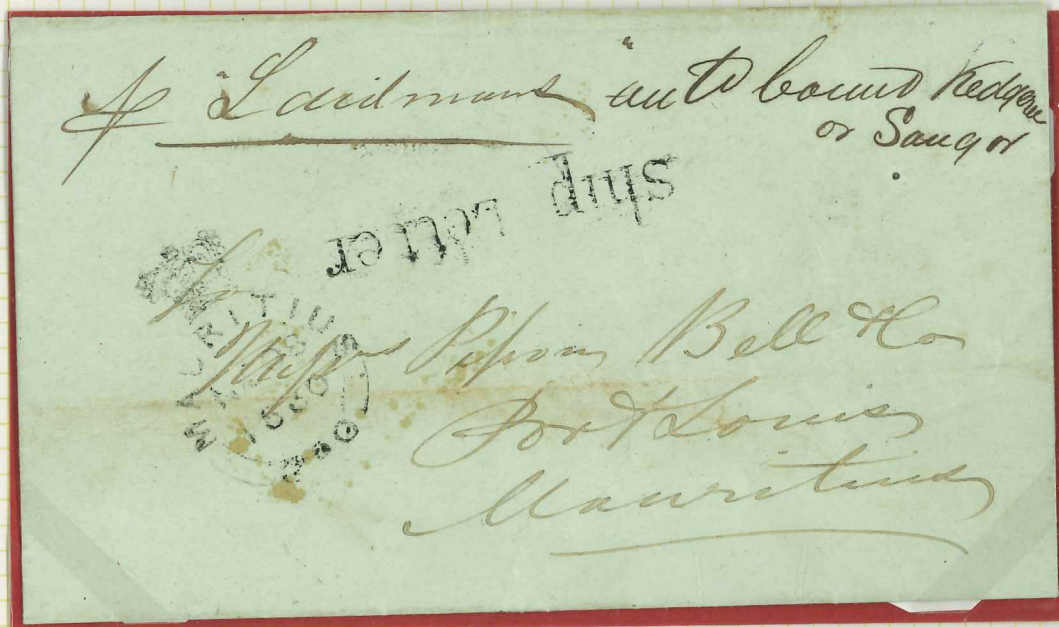 p "Laidmans" outd bound Kedgeree
or Saugor
Ship Letter
MAURITIUS
Messrs Pipon Bell & Co
Port Louis
Mauritius